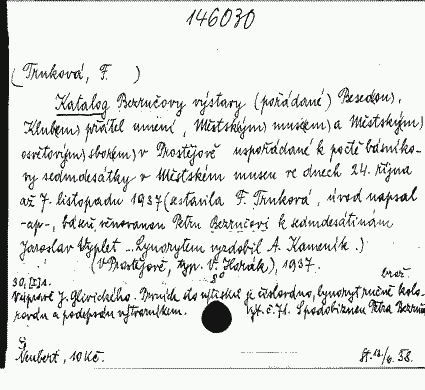 146030
(Trnková, F. )
Katalog Bezručovy výstavy (pořádané) Besedou,
Klubem přátel umění, Městským museem a Městským
osvětovým sborem v Prostějově uspořádané k poctě básníko-
vy sedmdesátky v Městském museu ve dnech 24. října
až 7. listopadu 1937 (sestavila F. Trnková, úvod napsal
-ap-, báseň věnovanou Petru Bezručovi k sedmdesátinám
Jaroslav Vyplet... Lynorytem vyzdobil A. Kameník.)
(V Prostějově, typ. V. Horák), 1937.
8° brož.
Váprové J. Glivického. Prvních sto výtisků je číslováno, lynoryt ručně kolo-
rován a podepsán výtvarníkem. Výt. č. 71. S podobiznou Petra Bezruče
Neubert, 10 Kč.